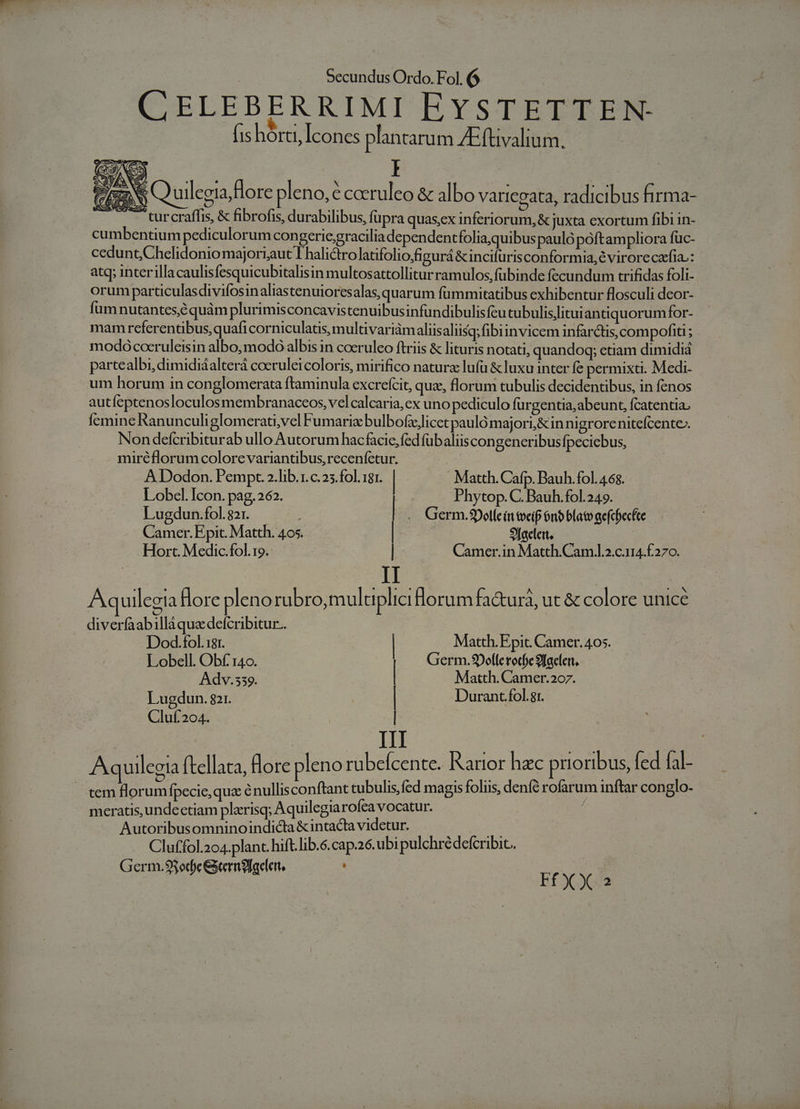 Secundus Ordo. Fol. 6
CELEBERRIMI EYSTETTEN-
ſis horti, Icones plantarum Æſtivalium.
I
AQuilegia, flore pleno, è cœruleo & albo variegata, radicibus firma-
tur craſſis, & fibroſis, durabilibus, ſupra quas, ex inferiorum, & juxta exortum ſibi in-
cumbentium pediculorum congerie, gracilia dependent folia, quibus pauló póſt ampliora ſuc-
cedunt, Chelidonio majori, aut Thalictro latifolio, figurá & inciſuris conformia, è virore cæſia:
atq; inter illa caulis ſesquicubitalis in multos attollitur ramulos, ſubinde ſecundum trifidas foli-
orum particulas diviſos in alias tenuiores alas, quarum ſummitatibus exhibentur floſculi deor-
ſum nutantes, è quàm plurimis concavis tenuibus infundibulis ſeu tubulis, litui antiquorum for-
mam referentibus, quaſi corniculatis, multivariàm aliis aliisq; ſibi invicem infarctis, compoſiti;
modó cœruleis in albo, modó albis in cœruleo ſtriis & lituris notati, quandoq; etiam dimidiâ
parte albi, dimidiâ alterâ cœrulei coloris, mirifico naturæ luſu & luxu inter ſe permixti. Medi-
um horum in conglomerata ſtaminula excreſcit, quæ, florum tubulis decidentibus, in ſenos
aut ſeptenos loculos membranaceos, vel calcaria, ex uno pediculo ſurgentia, abeunt, ſcatentia
ſemine Ranunculi glomerati, vel Fumariæ bulboſæ, licet pauló majori, & in nigrore niteſcente.
Non deſcribitur ab ullo Autorum hac facie, ſed ſub aliis congeneribus ſpeciebus,
miré florum colore variantibus, recenſetur.
A Dodon. Pempt. 2. lib. 1. c. 25. fol. 181.
Lobel. Icon. pag. 262.
Lugdun. fol. 821.
Camer. Epit. Matth. 405.
Hort. Medic. fol. 19.
Matth. Caſp. Bauh. fol. 468.
Phytop. C. Bauh. fol. 249.
Germ. Volle in weiß vnd blaw geſcheckte
Agelen.
Camer. in Matth. Cam. l. 2. c. 114. f. 270.
II
Aquilegia flore pleno rubro, multiplici florum facturâ, ut & colore unicè
diverſa ab illâ quæ deſcribitur.
Dod. fol. 181.
Lobell. Obſ. 140.
Adv. 339.
Lugdun. 821.
Cluſ. 204.
Matth. Epit. Camer. 405.
Germ. Volle rothe Agelen.
Matth. Camer. 207.
Durant. fol. 81.
III
Aquilegia ſtellata, flore pleno rubeſcente. Rarior hæc prioribus, ſed ſal-
tem florum ſpecie, quæ è nullis conſtant tubulis, ſed magis foliis, denſé roſarum inſtar conglo-
meratis, unde etiam plærisq; Aquilegia roſea vocatur.
Autoribus omnino indicta & intacta videtur.
Cluſ. fol. 204. plant. hiſt. lib. 6. cap. 26. ubi pulchrè deſcribit.
Germ. Rothe Stern Agelen.
Ff )( )( 2